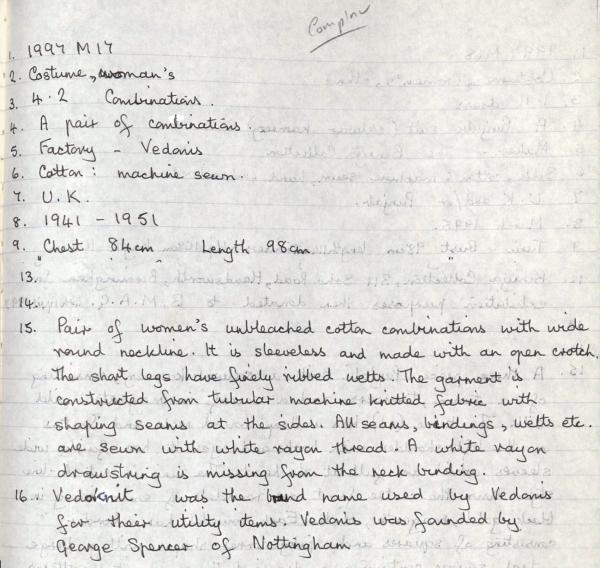 Complete
1. 1997 M17
2. Costume, woman's
3. 4.2 Combinations.
4. A pair of combinations.
5. Factory - Vedonis
6. Cotton: machine sewn.
7. U.K.
8. 1941 - 1951
9. Chest 84cm Length 98cm
13.
14.
15. Pair of women's unbleached cotton combinations with wide
round neckline. It is sleeveless and made with an open crotch.
The short legs have finely ribbed welts. The garment is
constructed from tubular machine knitted fabric with
shaping seams at the sides. All seams, bindings, welts etc.
are sewn with white rayon thread. A white rayon
drawstring is missing from the neck binding.
16. Vedoknit was the brand name used by Vedonis
for their utility items. Vedonis was founded by
George Spencer of Nottingham